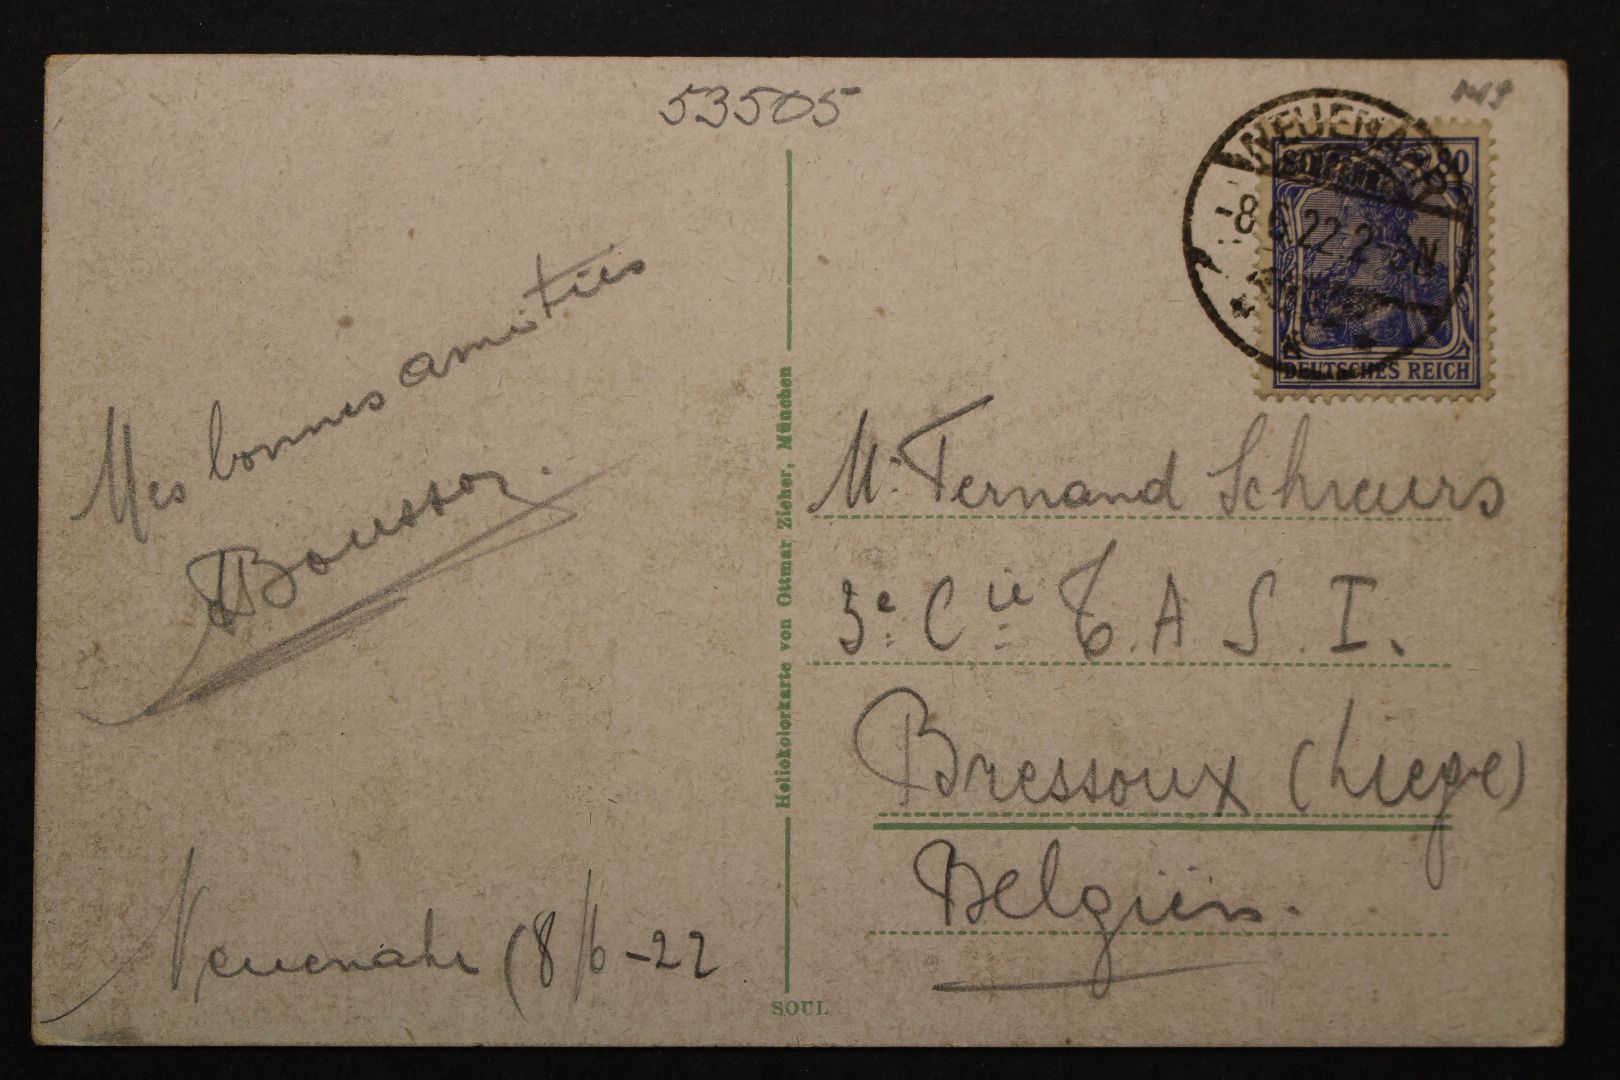 53505
NEUENAHR
8.6.22.2-3N
80 80
DEUTSCHES REICH
Mes bonnes amitiés
Neuenahr (8/6-22
Heliokolorkarte von Ottmar Zieher, München
SOUL
Mr. Fernand Schreurs
3e. Cie T.A.S.I.
Bressoux (Liege)
Belgien.